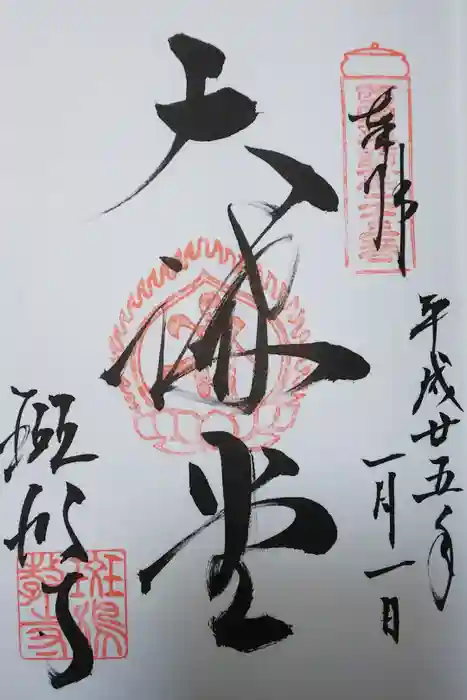 奉拝
平成廿五年
一月一日
大講堂
斑鳩寺